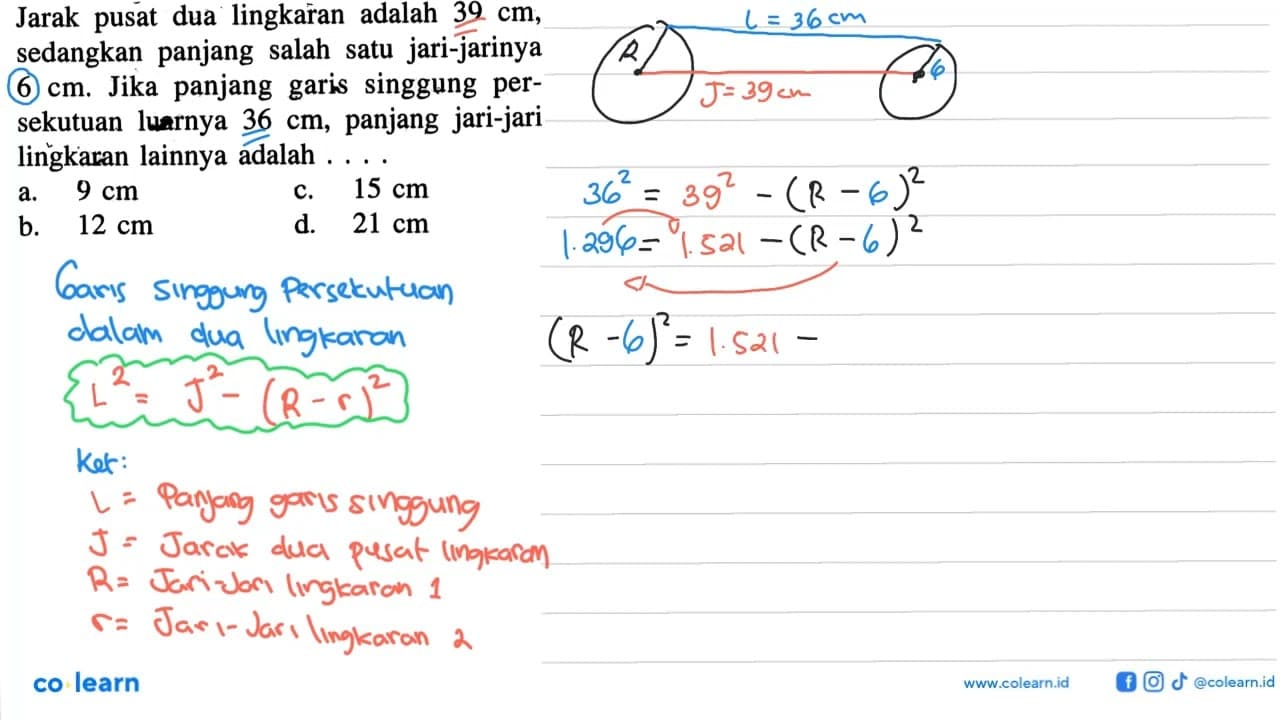 Jarak pusat dua lingkaran adalah 39 cm,
sedangkan panjang salah satu jari-jarinya
6 cm. Jika panjang garis singgung per-
sekutuan luarnya 36 cm, panjang jari-jari
lingkaran lainnya adalah . . . .
a. 9 cm c. 15 cm
b. 12 cm d. 21 cm
L = 36 cm
R
6
J = 39 cm
36² = 39² - (R - 6)²
1.296 = 1.521 - (R - 6)²
(R - 6)² = 1.521 -
Garis Singgung Persekutuan
dalam dua lingkaran
L² = J² - (R - r)²
Ket:
L = Panjang garis singgung
J = Jarak dua pusat lingkaran
R = Jari-Jari lingkaran 1
r = Jari-Jari lingkaran 2
co learn
www.colearn.id
@colearn.id